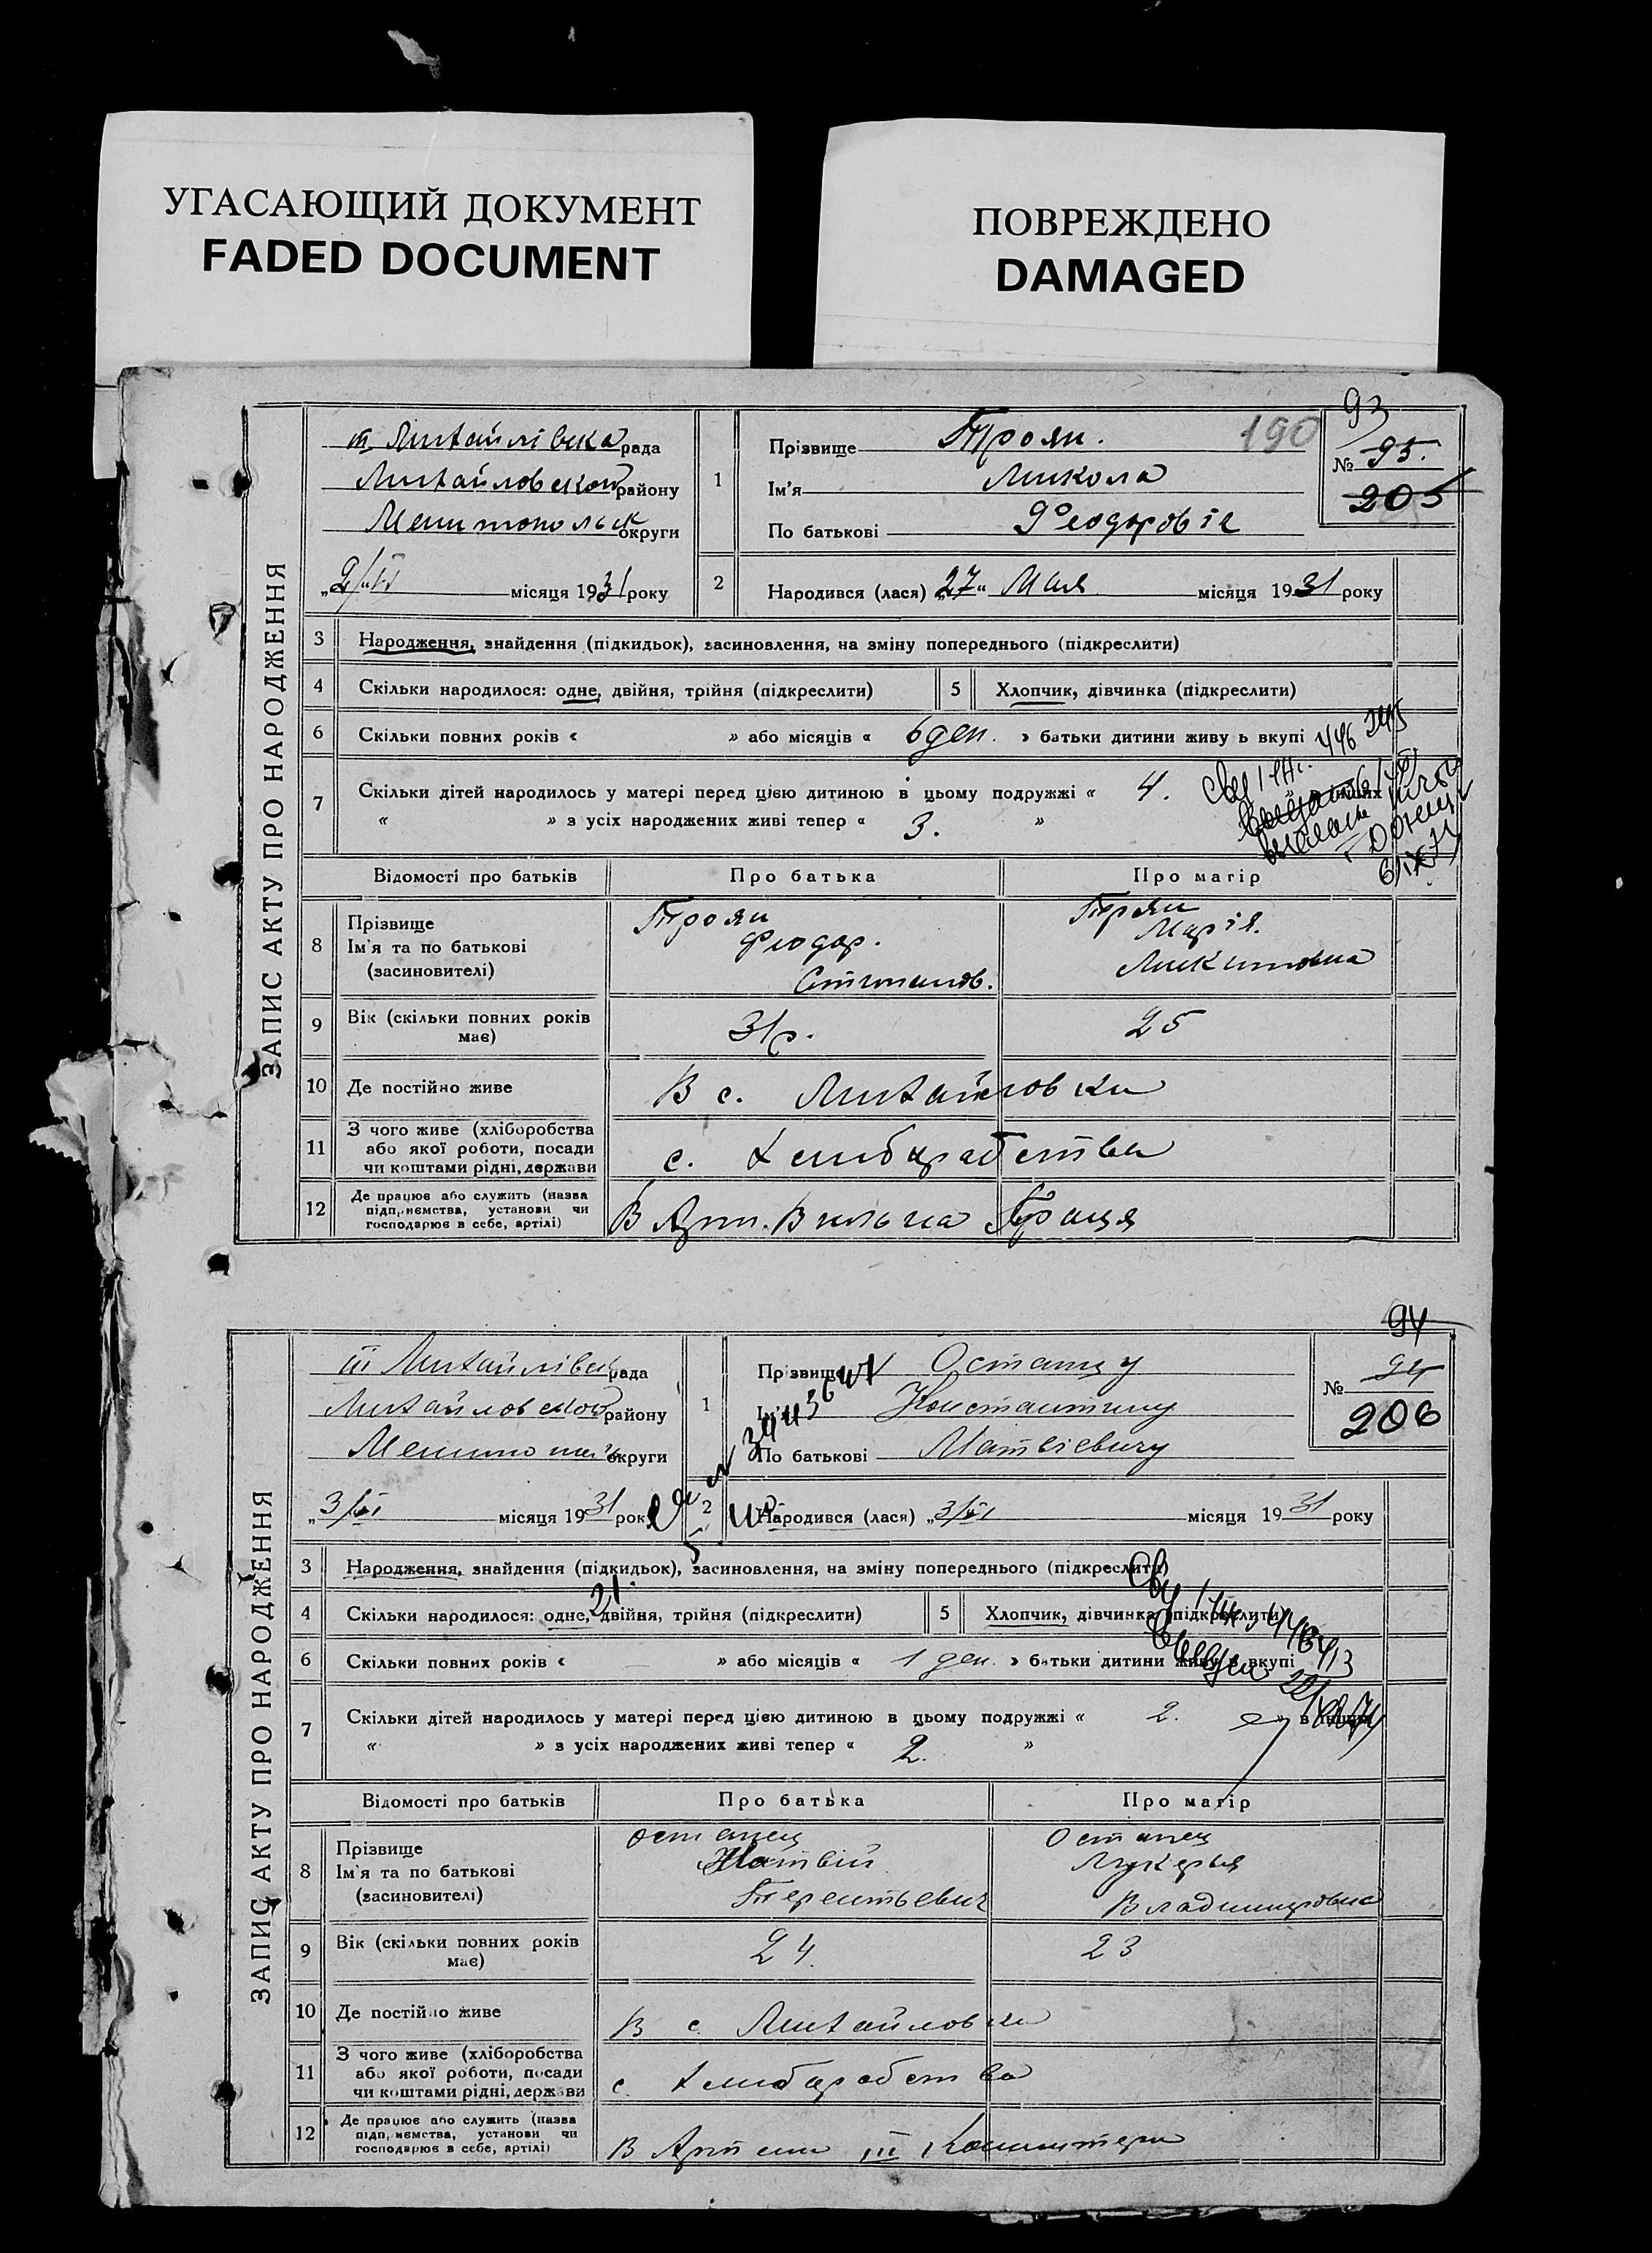 УГАСАЮЩИЙ ДОКУМЕНТ
FADED DOCUMENT
ПОВРЕЖДЕНО
DAMAGED
ЗАПИС АКТУ ПРО НАРОДЖЕННЯ
III Михайлівска рада
Михайловской району
Мелитопольск округи
„2/VI місяця 1931 року
1
Прізвище Троян.
Ім'я Микола
По батькові Феодоровіч
190
93
№ 95.
205
2
Народився (лася) „27“ Мая місяця 1931 року
3 Народження, знайдення (підкидьок), засиновлення, на зміну попереднього (підкреслити)
4 Скільки народилося: одне, двійня, трійня (підкреслити)
5 Хлопчик, дівчинка (підкреслити)
6 Скільки повних років « » або місяців « 6 ден. » батьки дитини живу ь вкупі
7 Скільки дітей народилось у матері перед цією дитиною в цьому подружжі « 4.
« » з усіх народжених живі тепер « 3. »
Відомості про батьків Про батька Про матір
8 Прізвище
Ім'я та по батькові
(засиновителі)
Троян
Феодор.
Степанов.
Троян
Марія.
Микитовна
9 Вік (скільки повних років має) 31 р. 25
10 Де постійно живе В с. Михайловки
11 З чого живе (хліборобства
або якої роботи, посади
чи коштами рідні, держави
с. Хлибарабства
12 Де працює або служить (назва
підприємства, установи чи
господарює в себе, артілі)
В Арт. Вильна Праця
ЗАПИС АКТУ ПРО НАРОДЖЕННЯ
III Михайлівск рада
Михайловской району
Мелитопол округи
„3/VI місяця 1931 року
1
Прізвище Остапцу
Ім'я Константину
По батькові Матвієвичу
94
№ 94
206
2
Народився (лася) „3/VI місяця 1931 року
3 Народження, знайдення (підкидьок), засиновлення, на зміну попереднього (підкреслити)
4 Скільки народилося: одне, двійня, трійня (підкреслити)
5 Хлопчик, дівчинка (підкреслити)
6 Скільки повних років « — » або місяців « 1 ден. » батьки дитини живу ь вкупі
7 Скільки дітей народилось у матері перед цією дитиною в цьому подружжі « 2. » в інших
« » з усіх народжених живі тепер « 2. »
Відомості про батьків Про батька Про матір
8 Прізвище
Ім'я та по батькові
(засиновителі)
Остапец
Матвій
Терентьевич
Остапец
Лукерья
Владимировна
9 Вік (скільки повних років має) 24. 23
10 Де постійно живе В с. Михайловки
11 З чого живе (хліборобства
або якої роботи, посади
чи коштами рідні, держави
с. Хлибарабства
12 Де працює або служить (назва
підприємства, установи чи
господарює в себе, артілі)
В Артели III Коминтерн